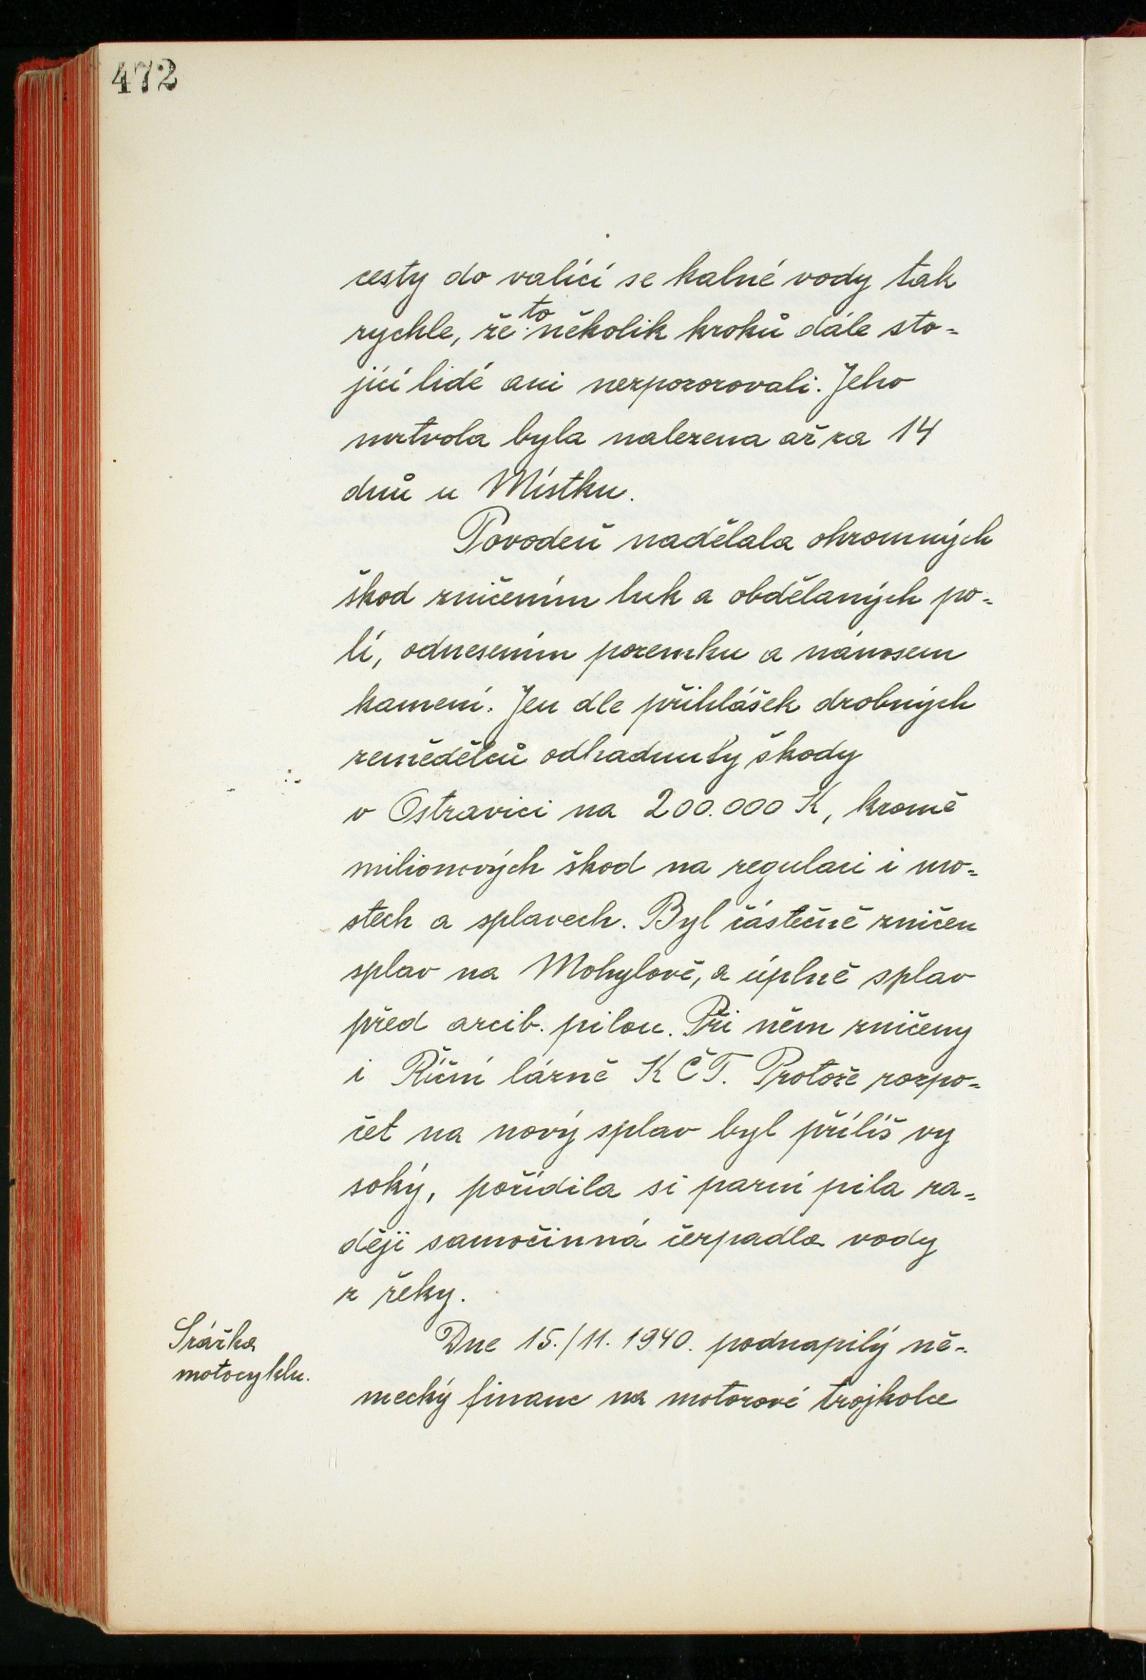 472
cesty do valící se kalné vody tak
rychle, že to několik kroků dále sto-
jící lidé ani nezpozorovali. Jeho
mrtvola byla nalezena až za 14
dnů u Místku.
Povodeň nadělala ohromných
škod zničením luk a obdělaných po-
lí, odnesením pozemku a nánosem
kamení. Jen dle přihlášek drobných
zemědělců odhadnuty škody
v Ostravici na 200.000 K, kromě
milionových škod na regulaci i mo-
stech a splavech. Byl částečně zničen
splav na Mohylově, a úplně splav
před arcib. pilou. Při něm zničeny
i Říční lázně KČT. Protože rozpo-
čet na nový splav byl příliš vy
soký, pořídila si parní pila ra-
ději samočinná čerpadla vody
z řeky.
Srážka
motocyklu.
Dne 15./11. 1940. podnapilý ně-
mecký financ na motorové trojkolce